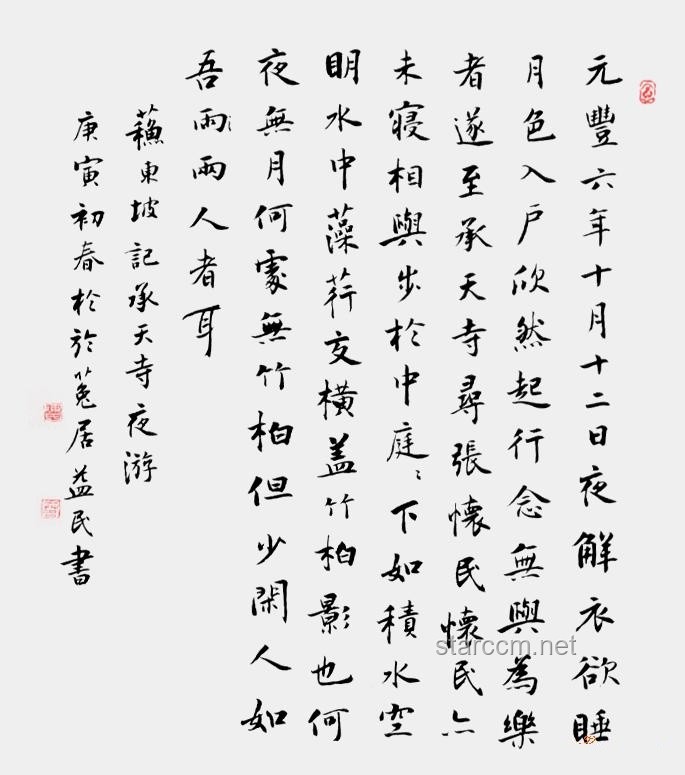 元豐六年十月十二日夜解衣欲睡
月色入戶欣然起行念無與為樂
者遂至承天寺尋張懷民懷民亦
未寢相與步於中庭〻下如積水空
明水中藻荇交橫盖竹柏影也何
夜無月何處無竹柏但少閑人如
吾兩兩人者耳
蘓東坡記承天寺夜游
庚寅初春於於菟居益民書
starccm.net